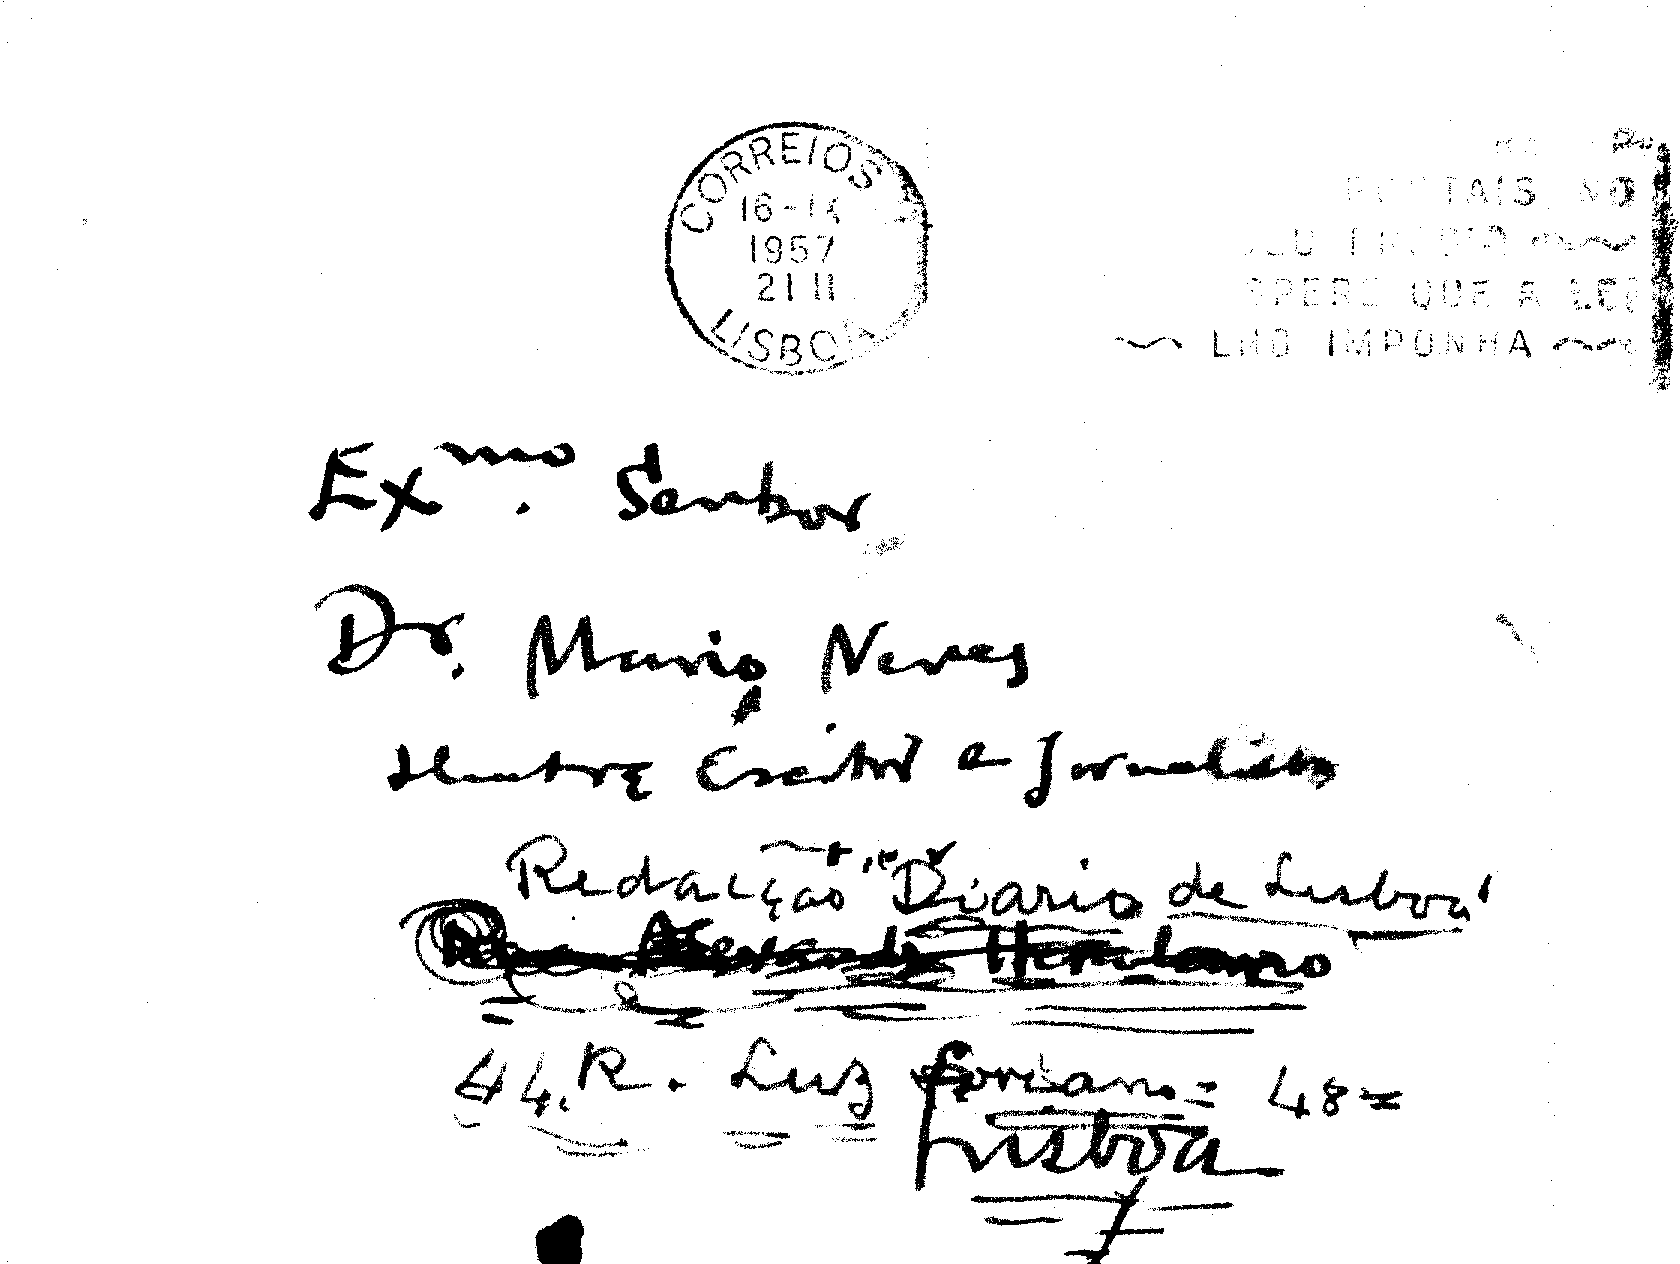 CORREIOS
16-IX
1957
21 H
LISBOA
POSTAIS NO
SEU PRÓPRIO
ESPERE QUE A
LHO IMPONHA
Exmo. Senhor
Dr. Mario Neves
Ilustre Escritor e Jornalista
Redacção "Diario de Lisboa"
Rua Alexandre Herculano
44, R. Luz Soriano = 48 =
Lisboa